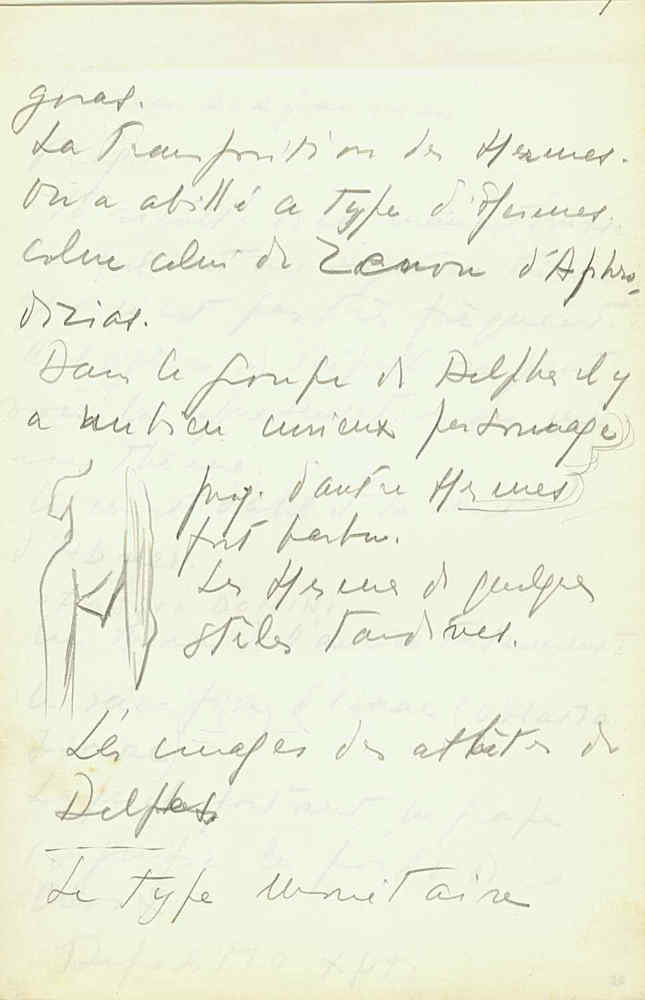 goras.
La Transposition des Hermes.
On a abillé ce Type d'Hermes.
celui de Zenon d'Aphro-
dizias.
Dans le groupe de Delphes il y
a un bien curieux personnage
d'autre Hermes
fort barbu.
Les Hermes de quelques
stèles Tardives.
Les images des athlètes de
Delphes.
Le Type Monétaire